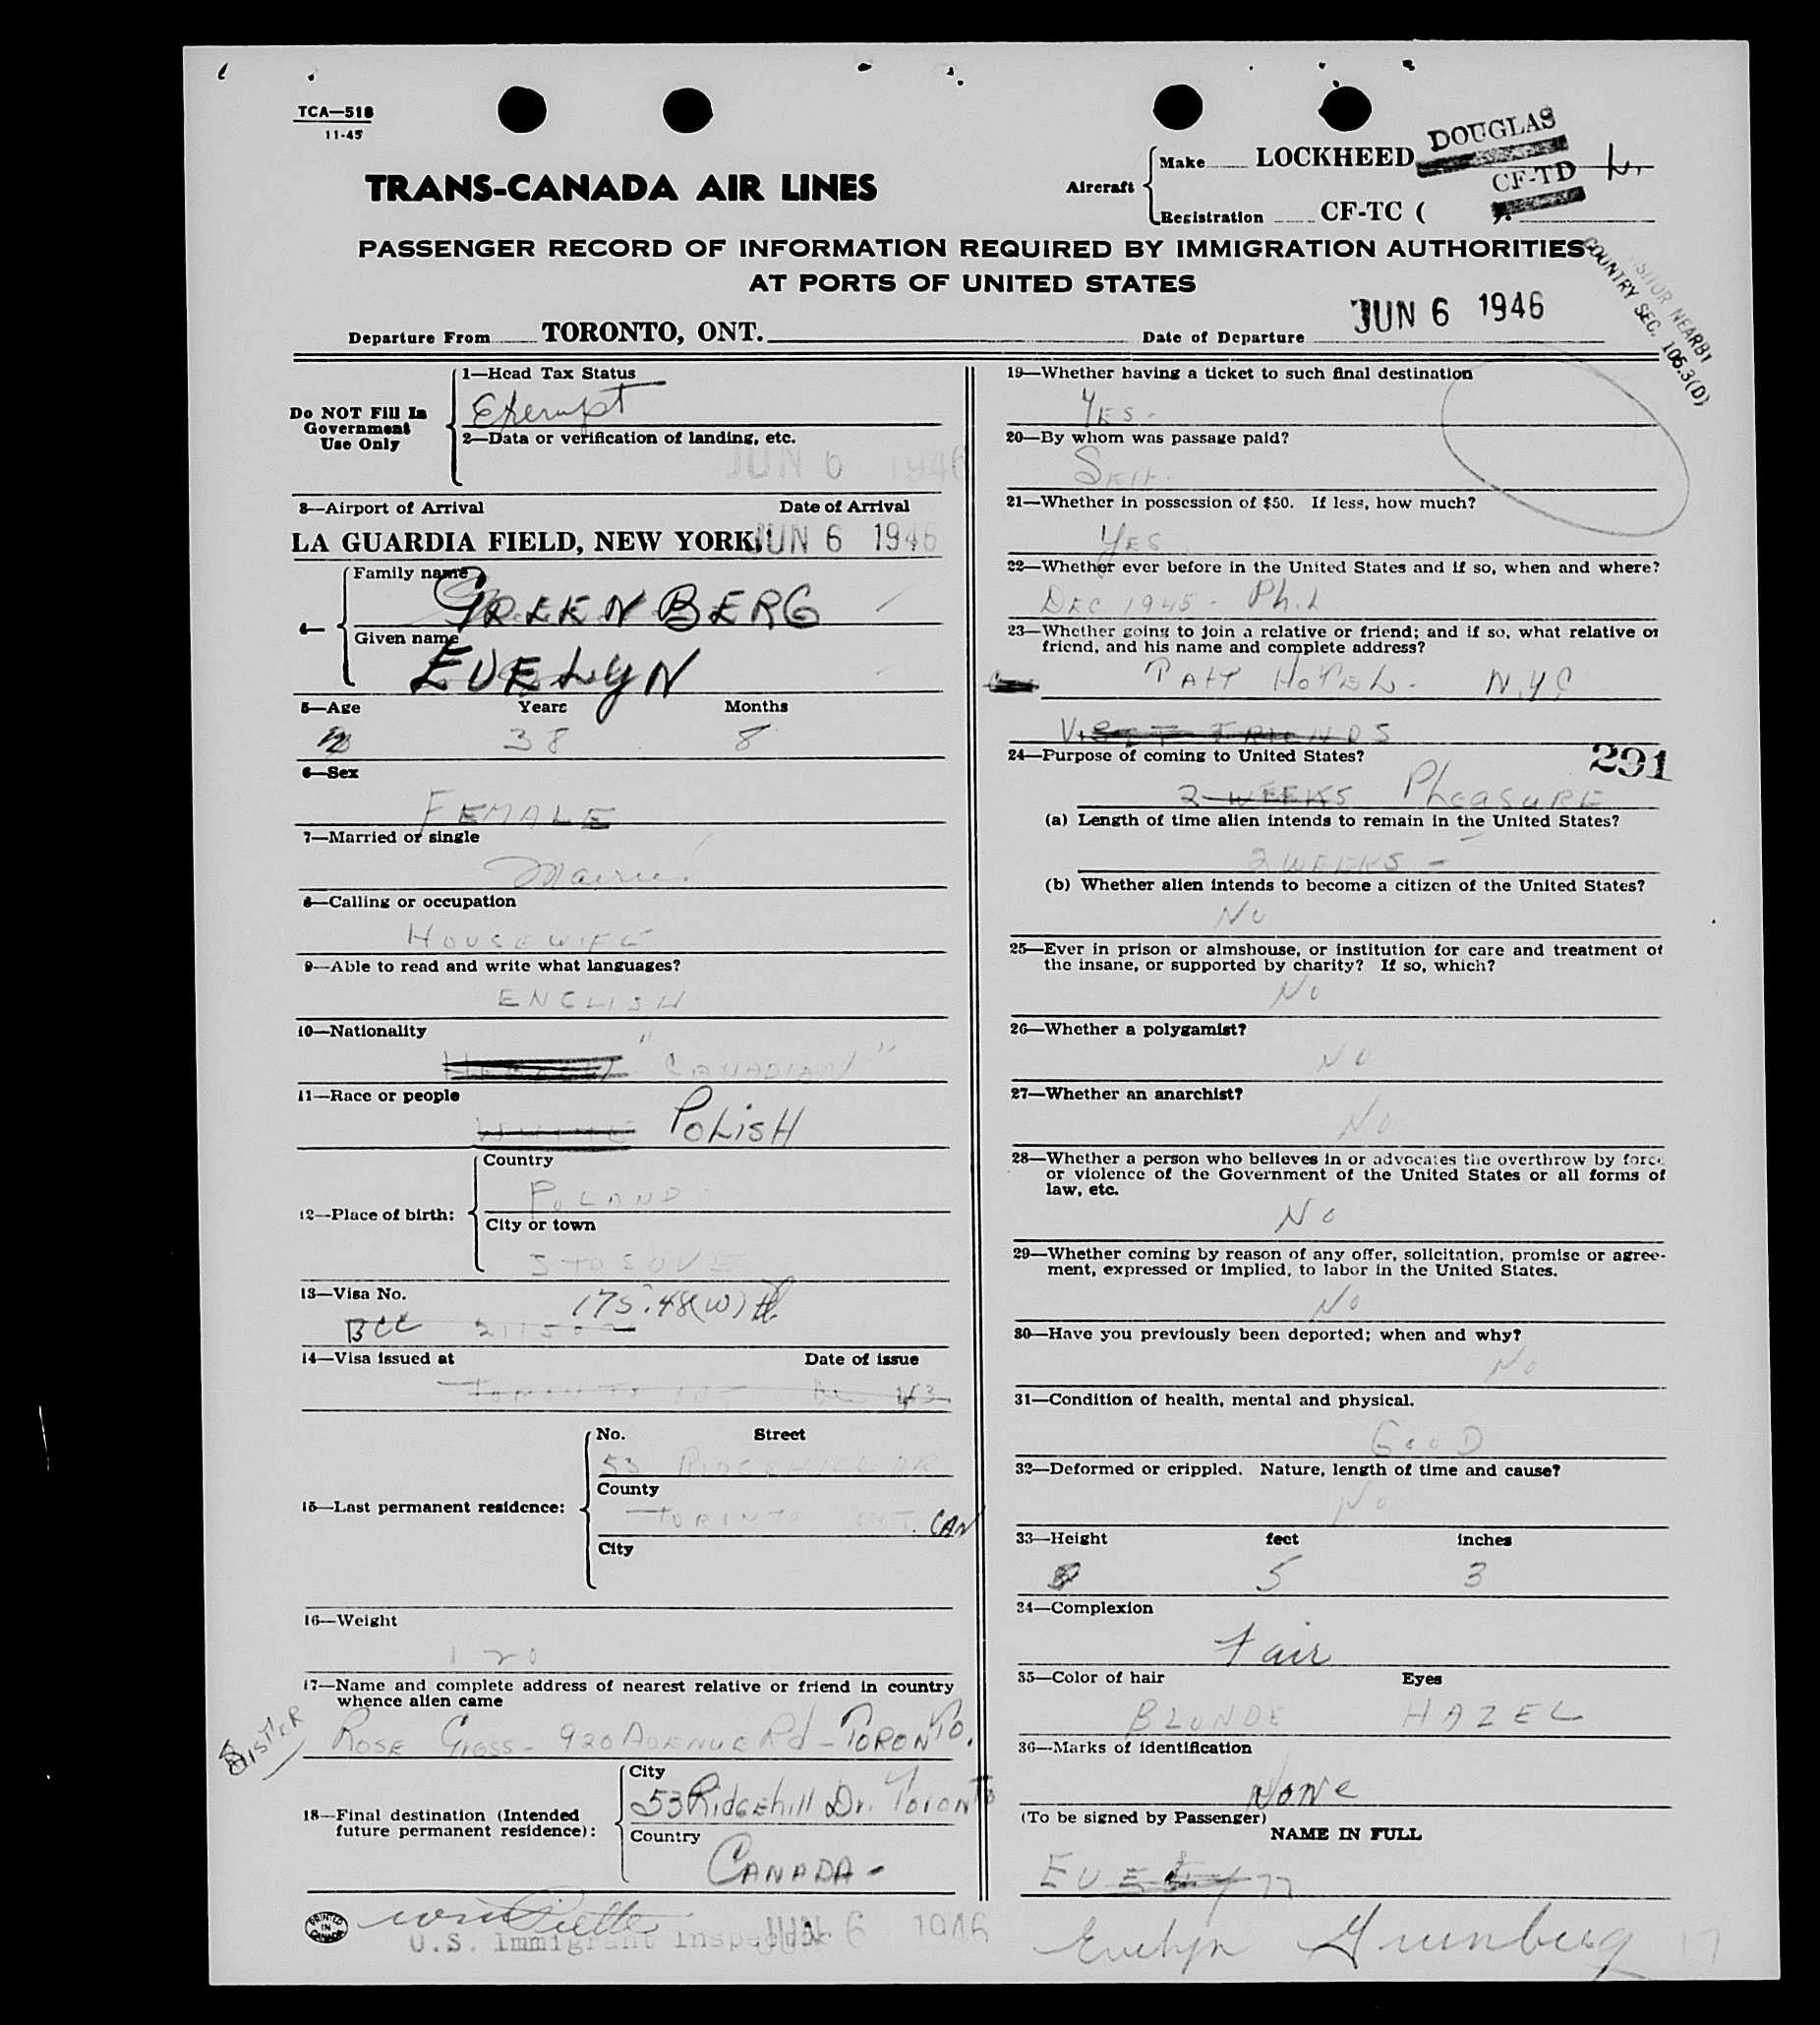 TCA—518
11-45
TRANS-CANADA AIR LINES
Aircraft
Make LOCKHEED DOUGLAS
Registration CF-TC ( CF-TD
PASSENGER RECORD OF INFORMATION REQUIRED BY IMMIGRATION AUTHORITIES
AT PORTS OF UNITED STATES
VISITOR NEARBY
COUNTRY SEC. 105.3(D)
Departure From TORONTO, ONT. Date of Departure JUN 6 1946
Do NOT Fill In
Government
Use Only
1—Head Tax Status
Exempt
2—Data or verification of landing, etc.
JUN 6 1946
3—Airport of Arrival Date of Arrival
LA GUARDIA FIELD, NEW YORK. JUN 6 1946
4—
Family name
GREENBERG
Given name
EVELYN
5—Age Years Months
38 8
6—Sex
FEMALE
7—Married or single
8—Calling or occupation
HOUSEWIFE
9—Able to read and write what languages?
ENGLISH
10—Nationality
"CANADIAN"
11—Race or people
WHITE POLISH
12—Place of birth:
Country
POLAND
City or town
13—Visa No.
175.48(W)
BCC
14—Visa issued at Date of issue
TORONTO
15—Last permanent residence:
No. Street
53 RIDGEHILL DR
County
TORONTO ONT. CAN
City
16—Weight
120
17—Name and complete address of nearest relative or friend in country
whence alien came
SISTER
ROSE GROSS - 920 AVENUE Rd - TORONTO.
18—Final destination (Intended
future permanent residence):
City
53 Ridgehill Dr. TORONTO
Country
CANADA -
PRINTED
IN
CANADA
U.S. Immigrant Inspector JUN 6 1946
19—Whether having a ticket to such final destination
YES -
20—By whom was passage paid?
SELF -
21—Whether in possession of $50. If less, how much?
YES
22—Whether ever before in the United States and if so, when and where?
DEC 1945 -
23—Whether going to join a relative or friend; and if so, what relative or
friend, and his name and complete address?
TAFT HOTEL - N.Y.C
VISIT FRIENDS
24—Purpose of coming to United States?
291
2 WEEKS PLEASURE
(a) Length of time alien intends to remain in the United States?
2 WEEKS -
(b) Whether alien intends to become a citizen of the United States?
NO
25—Ever in prison or almshouse, or institution for care and treatment of
the insane, or supported by charity? If so, which?
NO
26—Whether a polygamist?
NO
27—Whether an anarchist?
NO
28—Whether a person who believes in or advocates the overthrow by force
or violence of the Government of the United States or all forms of
law, etc.
NO
29—Whether coming by reason of any offer, solicitation, promise or agree-
ment, expressed or implied, to labor in the United States.
NO
30—Have you previously been deported; when and why?
NO
31—Condition of health, mental and physical.
GOOD
32—Deformed or crippled. Nature, length of time and cause?
NO
33—Height feet inches
5 3
34—Complexion
Fair
35—Color of hair Eyes
BLONDE HAZEL
36—Marks of identification
NONE
(To be signed by Passenger)
NAME IN FULL
EVELYN
Evelyn Greenberg 17